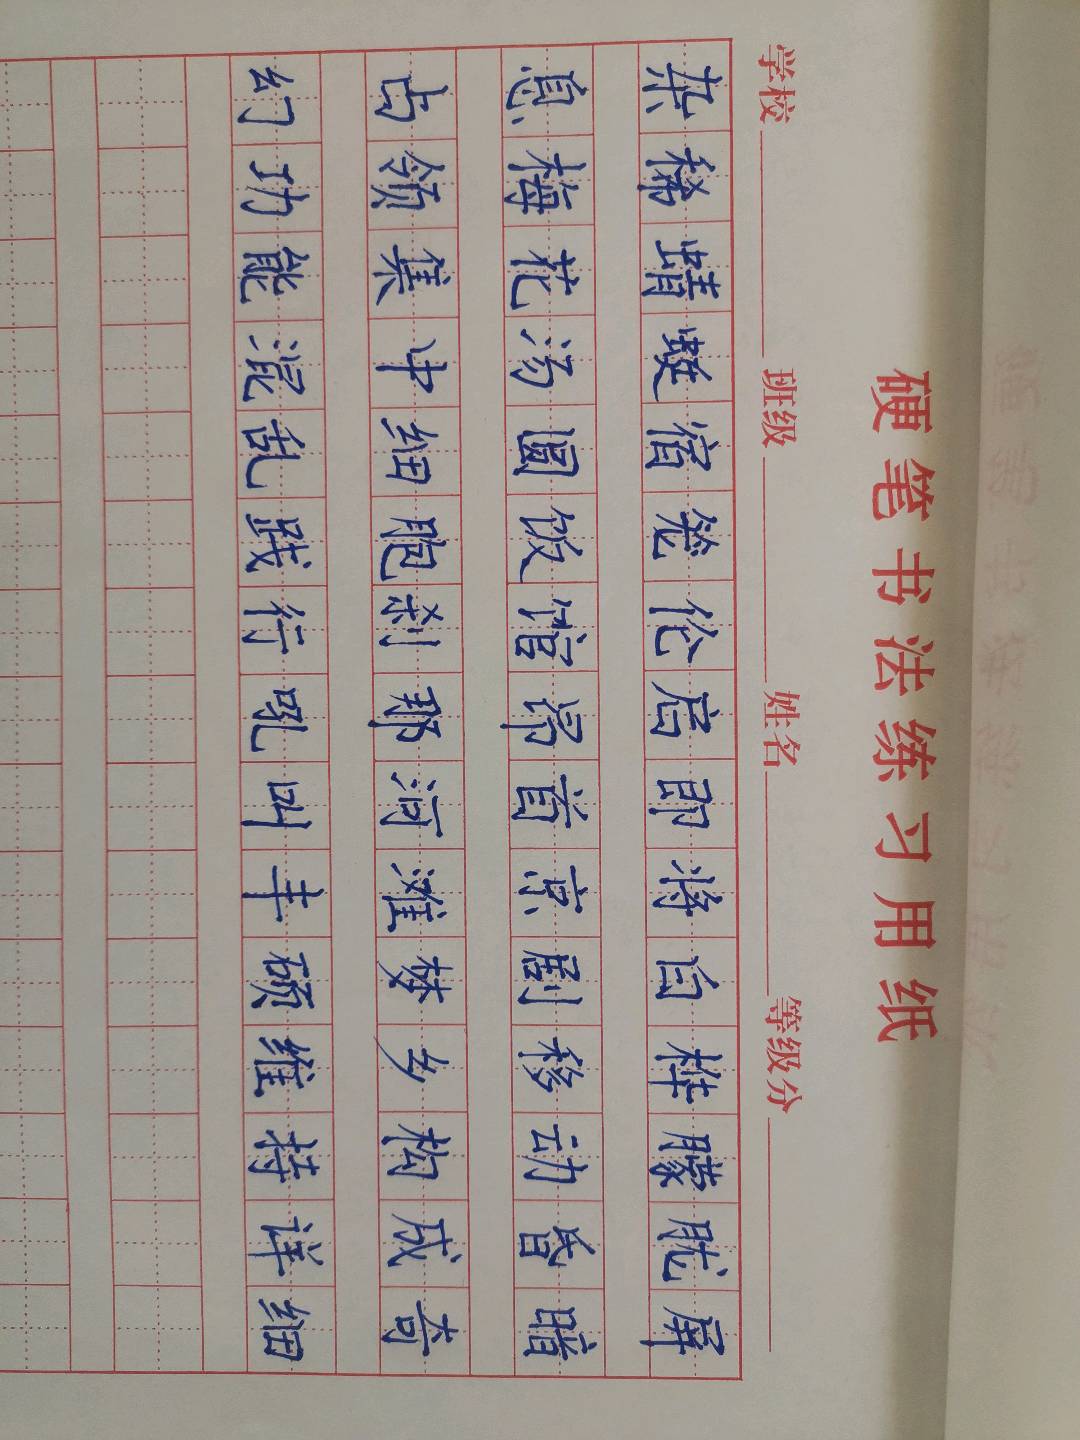 硬笔书法练习用纸
学校 班级 姓名 等级分
杂稀蜻蜓宿笼伦启即将白桦朦胧屏
息梅花汤圆饭馆昂首京剧移动昏暗
占领集中细胞刹那河滩梦乡构成奇
幻功能混乱践行吼叫丰硕维持详细